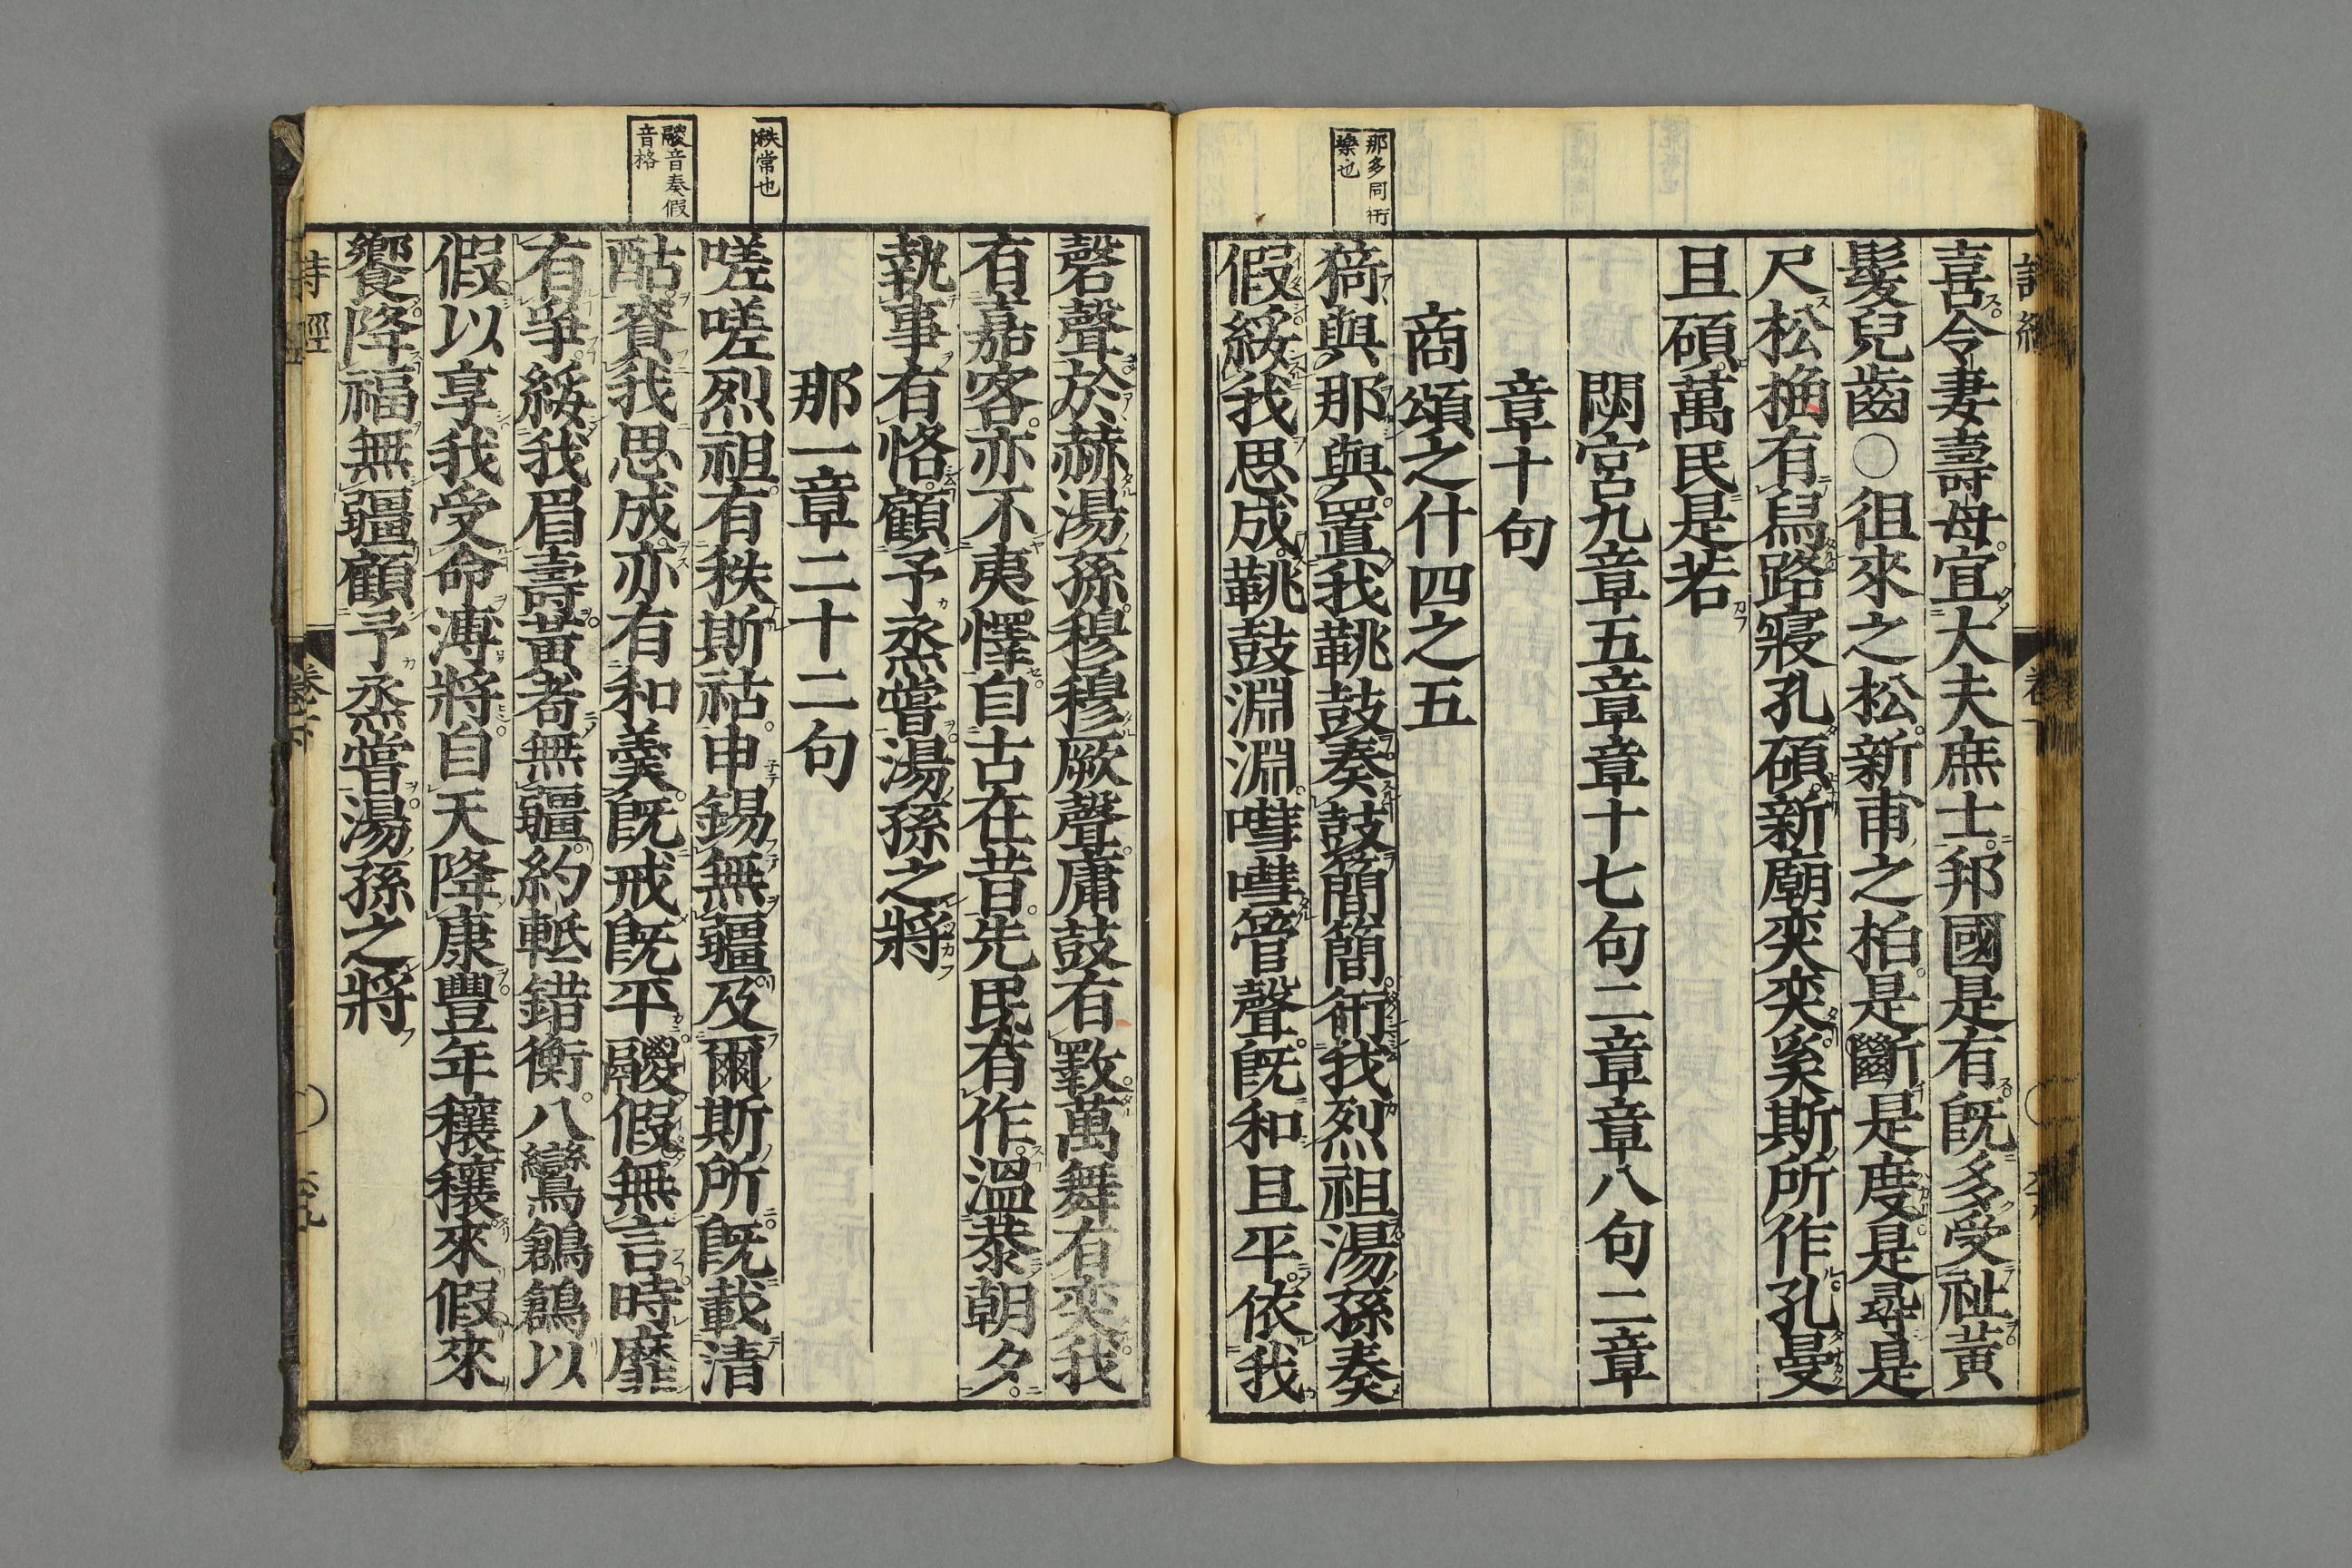 那多同衎
樂也
喜令妻壽母宜大夫庶士邦國是有既多受祉黃
髮兒齒○徂來之松新甫之柏是斷是度是尋是
尺松桷有舄路寢孔碩新廟奕奕奚斯所作孔曼
且碩萬民是若
閟宮九章五章章十七句二章章八句二章
章十句
商頌之什四之五
猗與那與置我鞉鼓奏鼓簡簡衎我烈祖湯孫奏
假綏我思成鞉鼓淵淵嘒嘒管聲既和且平依我
秩常也
鬷音奏假
音格
磬聲於赫湯孫穆穆厥聲庸鼓有斁萬舞有奕我
有嘉客亦不夷懌自古在昔先民有作溫恭朝夕
執事有恪顧予烝嘗湯孫之將
那一章二十二句
嗟嗟烈祖有秩斯祜申錫無疆及爾斯所既載清
酤賚我思成亦有和羹既戒既平鬷假無言時靡
有爭綏我眉壽黃耇無疆約軝錯衡八鸞鶬鶬以
假以享我受命溥將自天降康豐年穰穰來假來
饗降福無疆顧予烝嘗湯孫之將
詩經